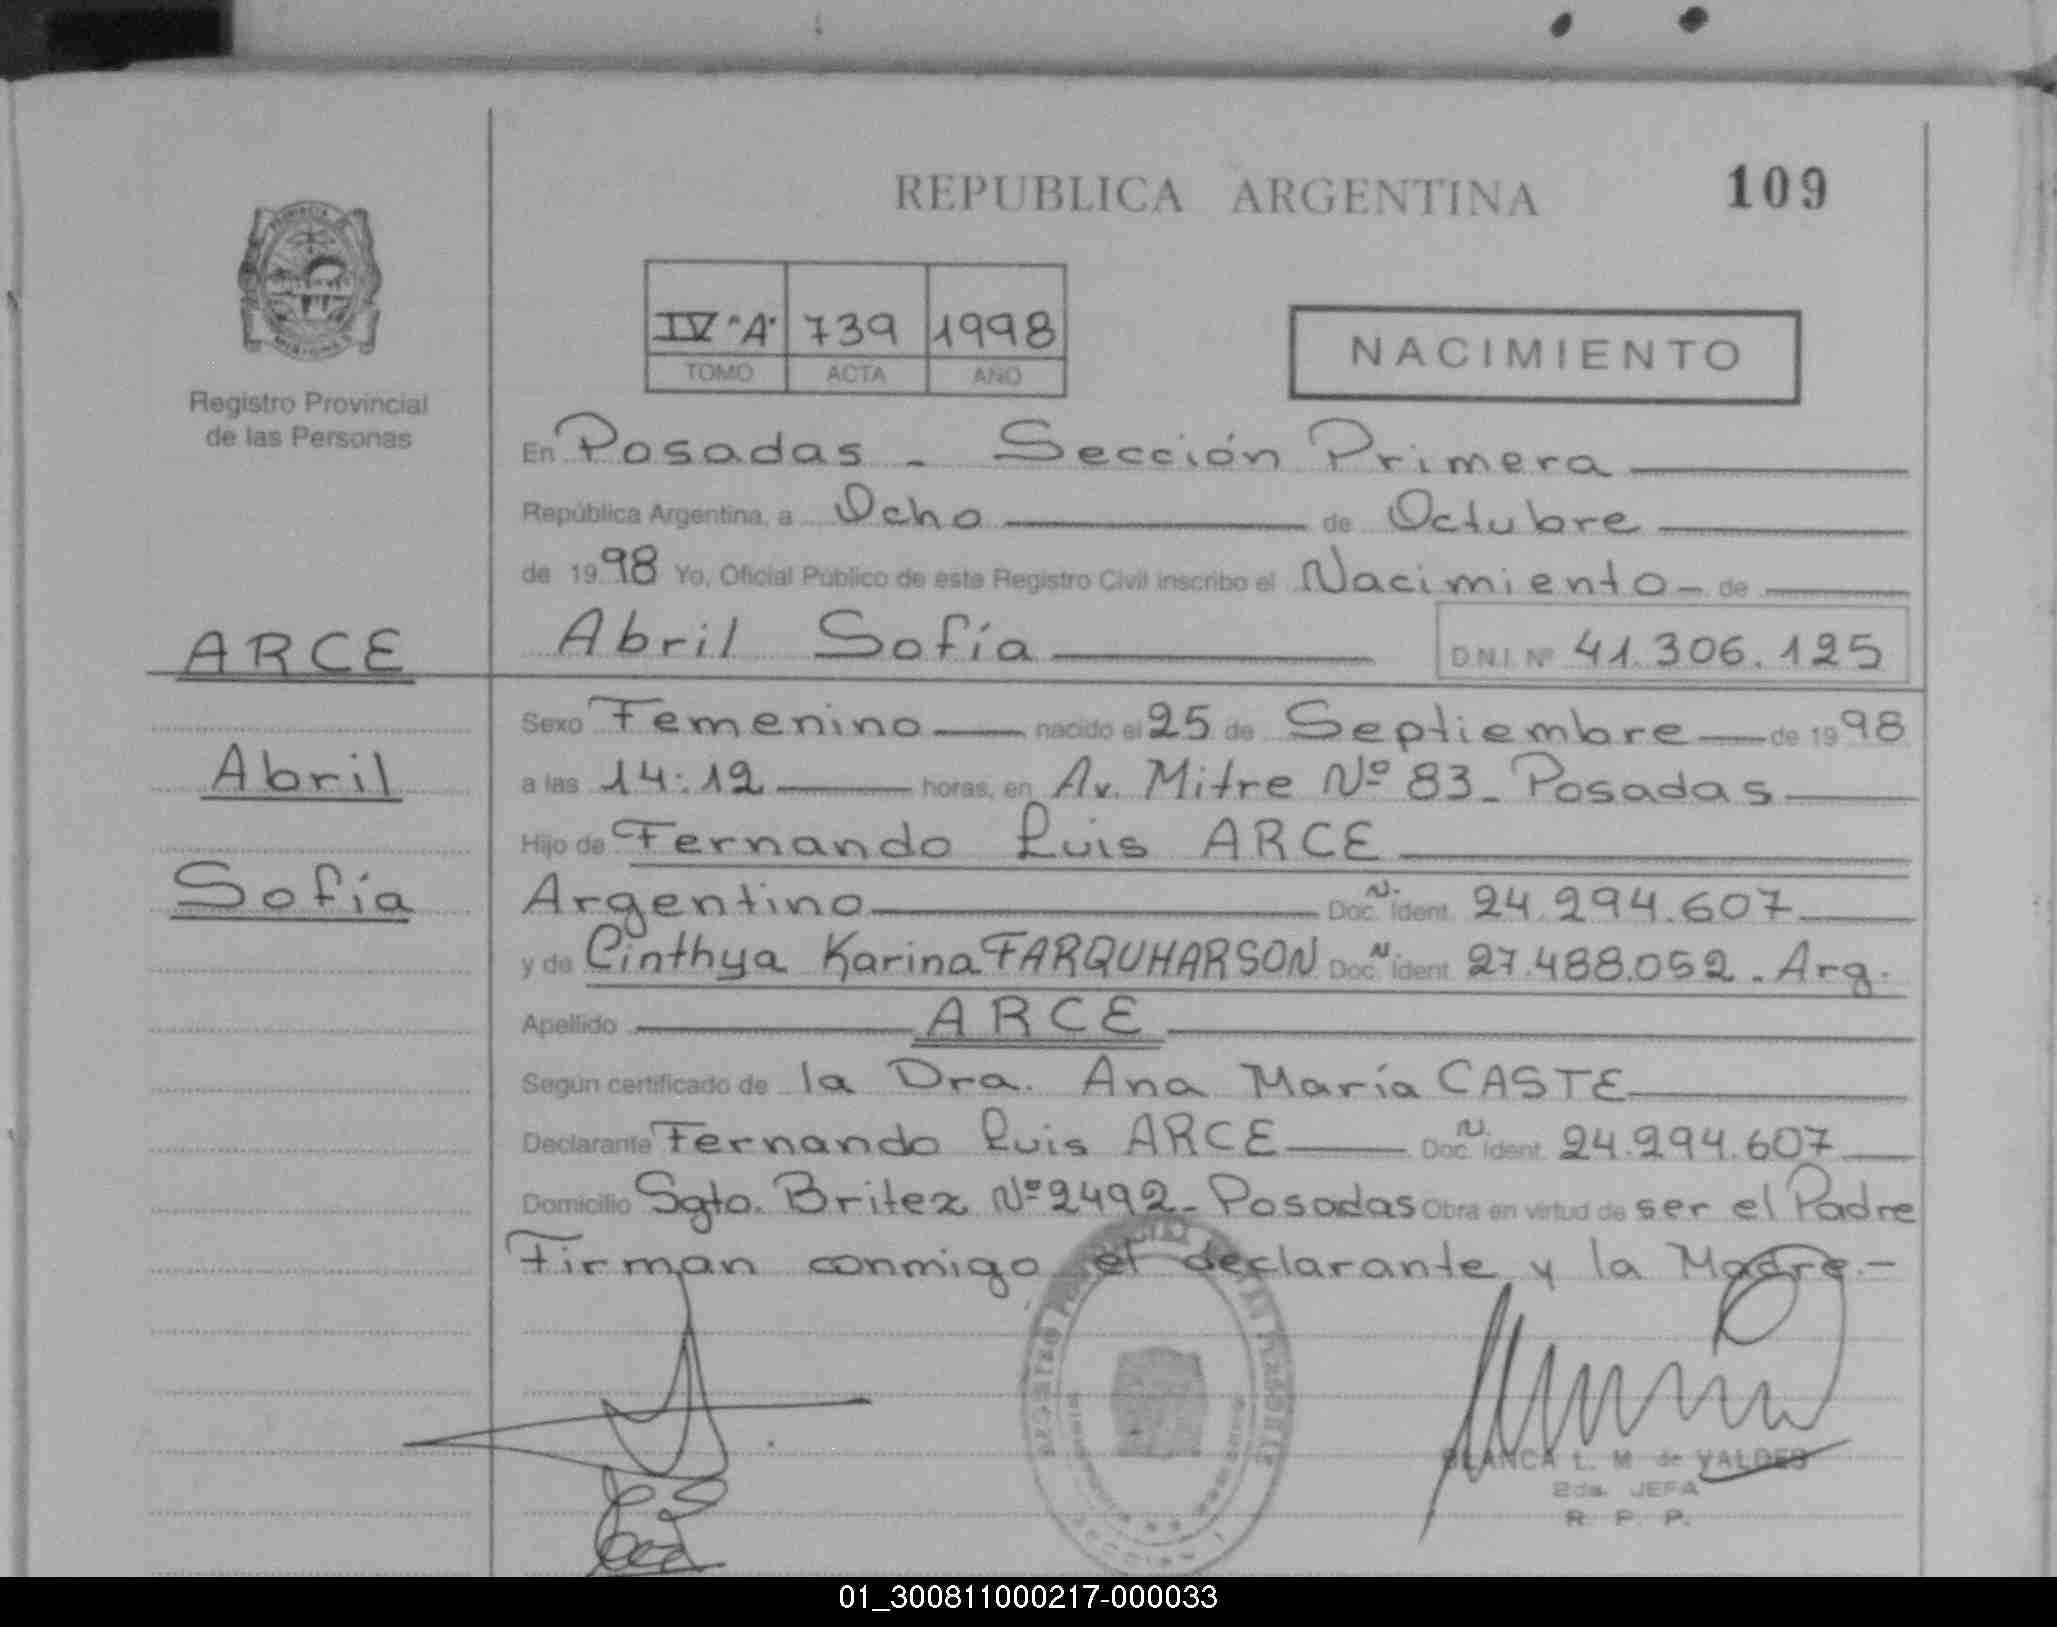 REPUBLICA ARGENTINA
109
Registro Provincial
de las Personas
IV "A" 739 1998
TOMO ACTA AÑO
NACIMIENTO
En Posadas - Sección Primera
República Argentina, a Ocho de Octubre
de 1998 Yo, Oficial Público de este Registro Civil inscribo el Nacimiento - de
ARCE
Abril
Sofía
Abril Sofía D.N.I. Nº 41.306.125
Sexo Femenino nacido el 25 de Septiembre de 1998
a las 14:12 horas, en Av. Mitre Nº 83 - Posadas
Hijo de Fernando Luis ARCE
Argentino Doc. N. Ident. 24.294.607
y de Cinthya Karina FARQUHARSON Doc. N Ident. 27.488.052. Arg.
Apellido ARCE
Según certificado de la Dra. Ana María CASTE
Declarante Fernando Luis ARCE Doc. N. Ident. 24.294.607
Domicilio Sgto. Britez Nº 2492 - Posadas Obra en virtud de ser el Padre
Firman conmigo el declarante y la Madre.-
BLANCA L. M. de VALDES
2da. JEFA
R. P. P.
01_300811000217-000033